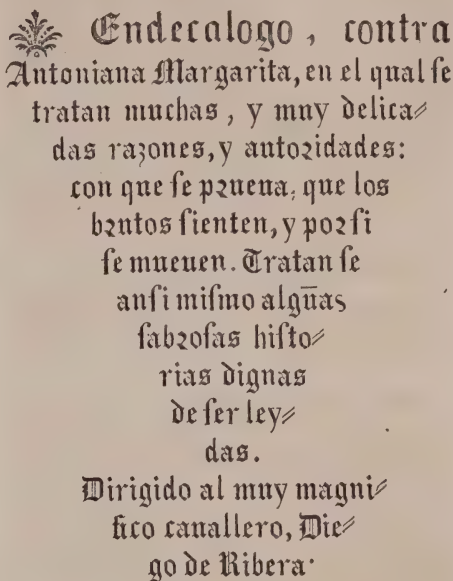 Endecalogo, contra
Antoniana Margarita, en el qual ſe
tratan muchas, y muy delica⸗
das razones, y autoꝛidades:
con que ſe pꝛueua, que los
bꝛutos ſienten, y poꝛ ſi
ſe mueuen. Tratan ſe
anſi miſmo algũas
ſabꝛoſas hiſto⸗
rias dignas
de ſer ley⸗
das.
Dirigido al muy magni⸗
fico cauallero, Die⸗
go de Ribera·